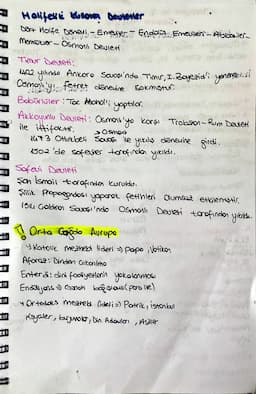 Halifelik Kullanan Devletler
Dört Halife Dönemi - Emeviler - Endülüs Emevileri - Abbasiler -
Memlükler - Osmanlı Devleti
Timur Devleti:
1402 yılında Ankara Savaşı'nda Timur, I. Bayezid'i yenerek
Osmanlı'yı fetret dönemine sokmuştur.
Babürlüler: Tac Mahal'i yaptılar.
Akkoyunlu Devleti: Osmanlı'ya karşı Trabzon-Rum Devleti
ile ittifaktır.
→ Osmanlı
1473 Otlukbeli Savaşı ile yıkılış dönemine girdi.
1502'de safeviler tarafından yıkıldı.
Safevi Devleti
Şah İsmail tarafından kuruldu.
Şiilik Propagandası yaparak fetihleri olumsuz etkilemiştir.
1514 Çaldıran Savaşı'nda Osmanlı Devleti tarafından yıkıldı.
Orta Çağda Avrupa
→ Katolik mezhebi lideri → papa, Vatikan
Aforoz: Dinden çıkarılma
Enterdi: dini faaliyetlerin yasaklanması
Endüljans →
→ Ortodoks mezhebi lideri → Patrik, İstanbul
Köylüler, burjuvalar, Din Adamları, Asiller